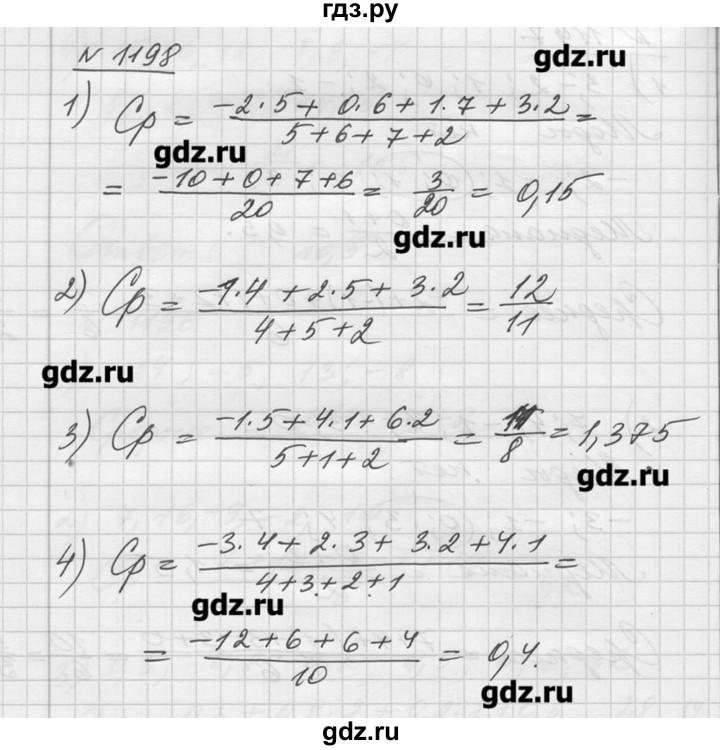 гдз.ру
№ 1198
gdz.ru
1) Ср = (-2·5 + 0·6 + 1·7 + 3·2)/(5+6+7+2) =
gdz.ru
= (-10+0+7+6)/20 = 3/20 = 0,15
gdz.ru
2) Ср = (-1·4 + 2·5 + 3·2)/(4+5+2) = 12/11
gdz.ru
3) Ср = (-1·5+4·1+6·2)/(5+1+2) = 11/8 = 1,375
gdz.ru
4) Ср = (-3·4+2·3+3·2+4·1)/(4+3+2+1) =
gdz.ru
= (-12+6+6+4)/10 = 0,4.
gdz.ru
gdz.ru